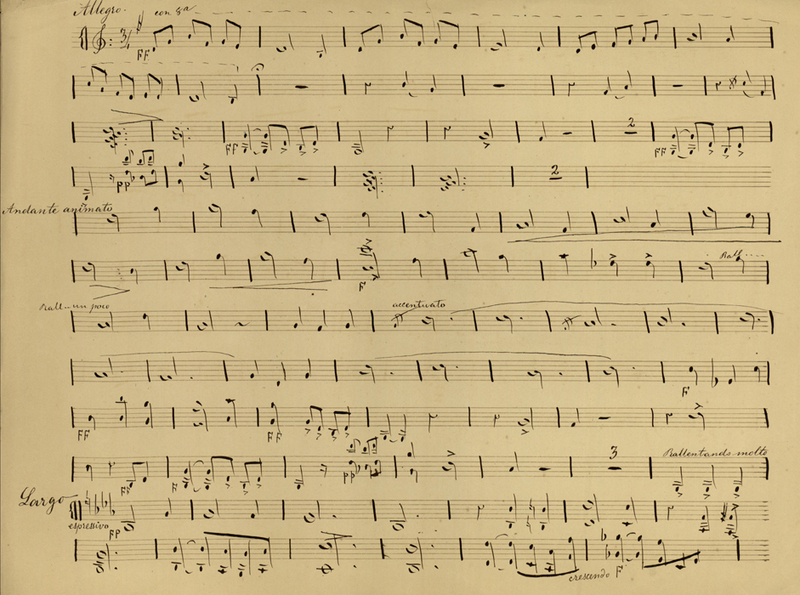 Allegro. con 8ª
3/4
FF
FF
2
FF
pp
2
Andante animato
F
Rall....
Rall... un poco
accentuato
F
FF
FF
FF
F
pp
3
Rallentando molto
Largo
espressivo
pp
crescendo F